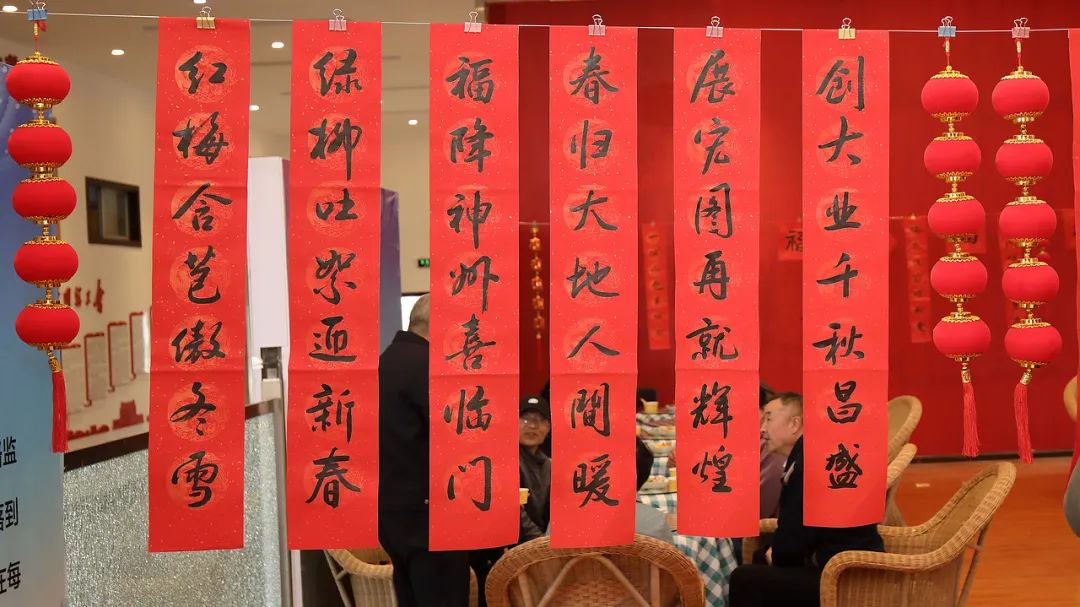 红梅含苞傲冬雪
绿柳吐絮迎新春
福降神州喜临门
春归大地人間暖
展宏图再就辉煌
创大业千秋昌盛
福
监
到
在每